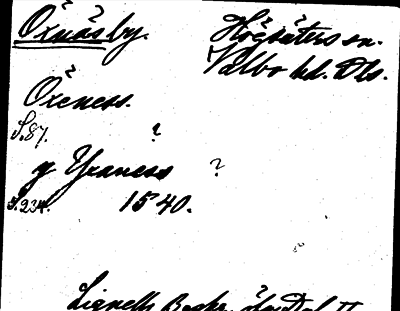 Öxnäs by. Högsäters sn.
Valbo hd. Dls.
Öxeness.
S. 87. ?
y Yxaness ?
S. 234. 1540.
Lignells Beskr. öfver Dal II